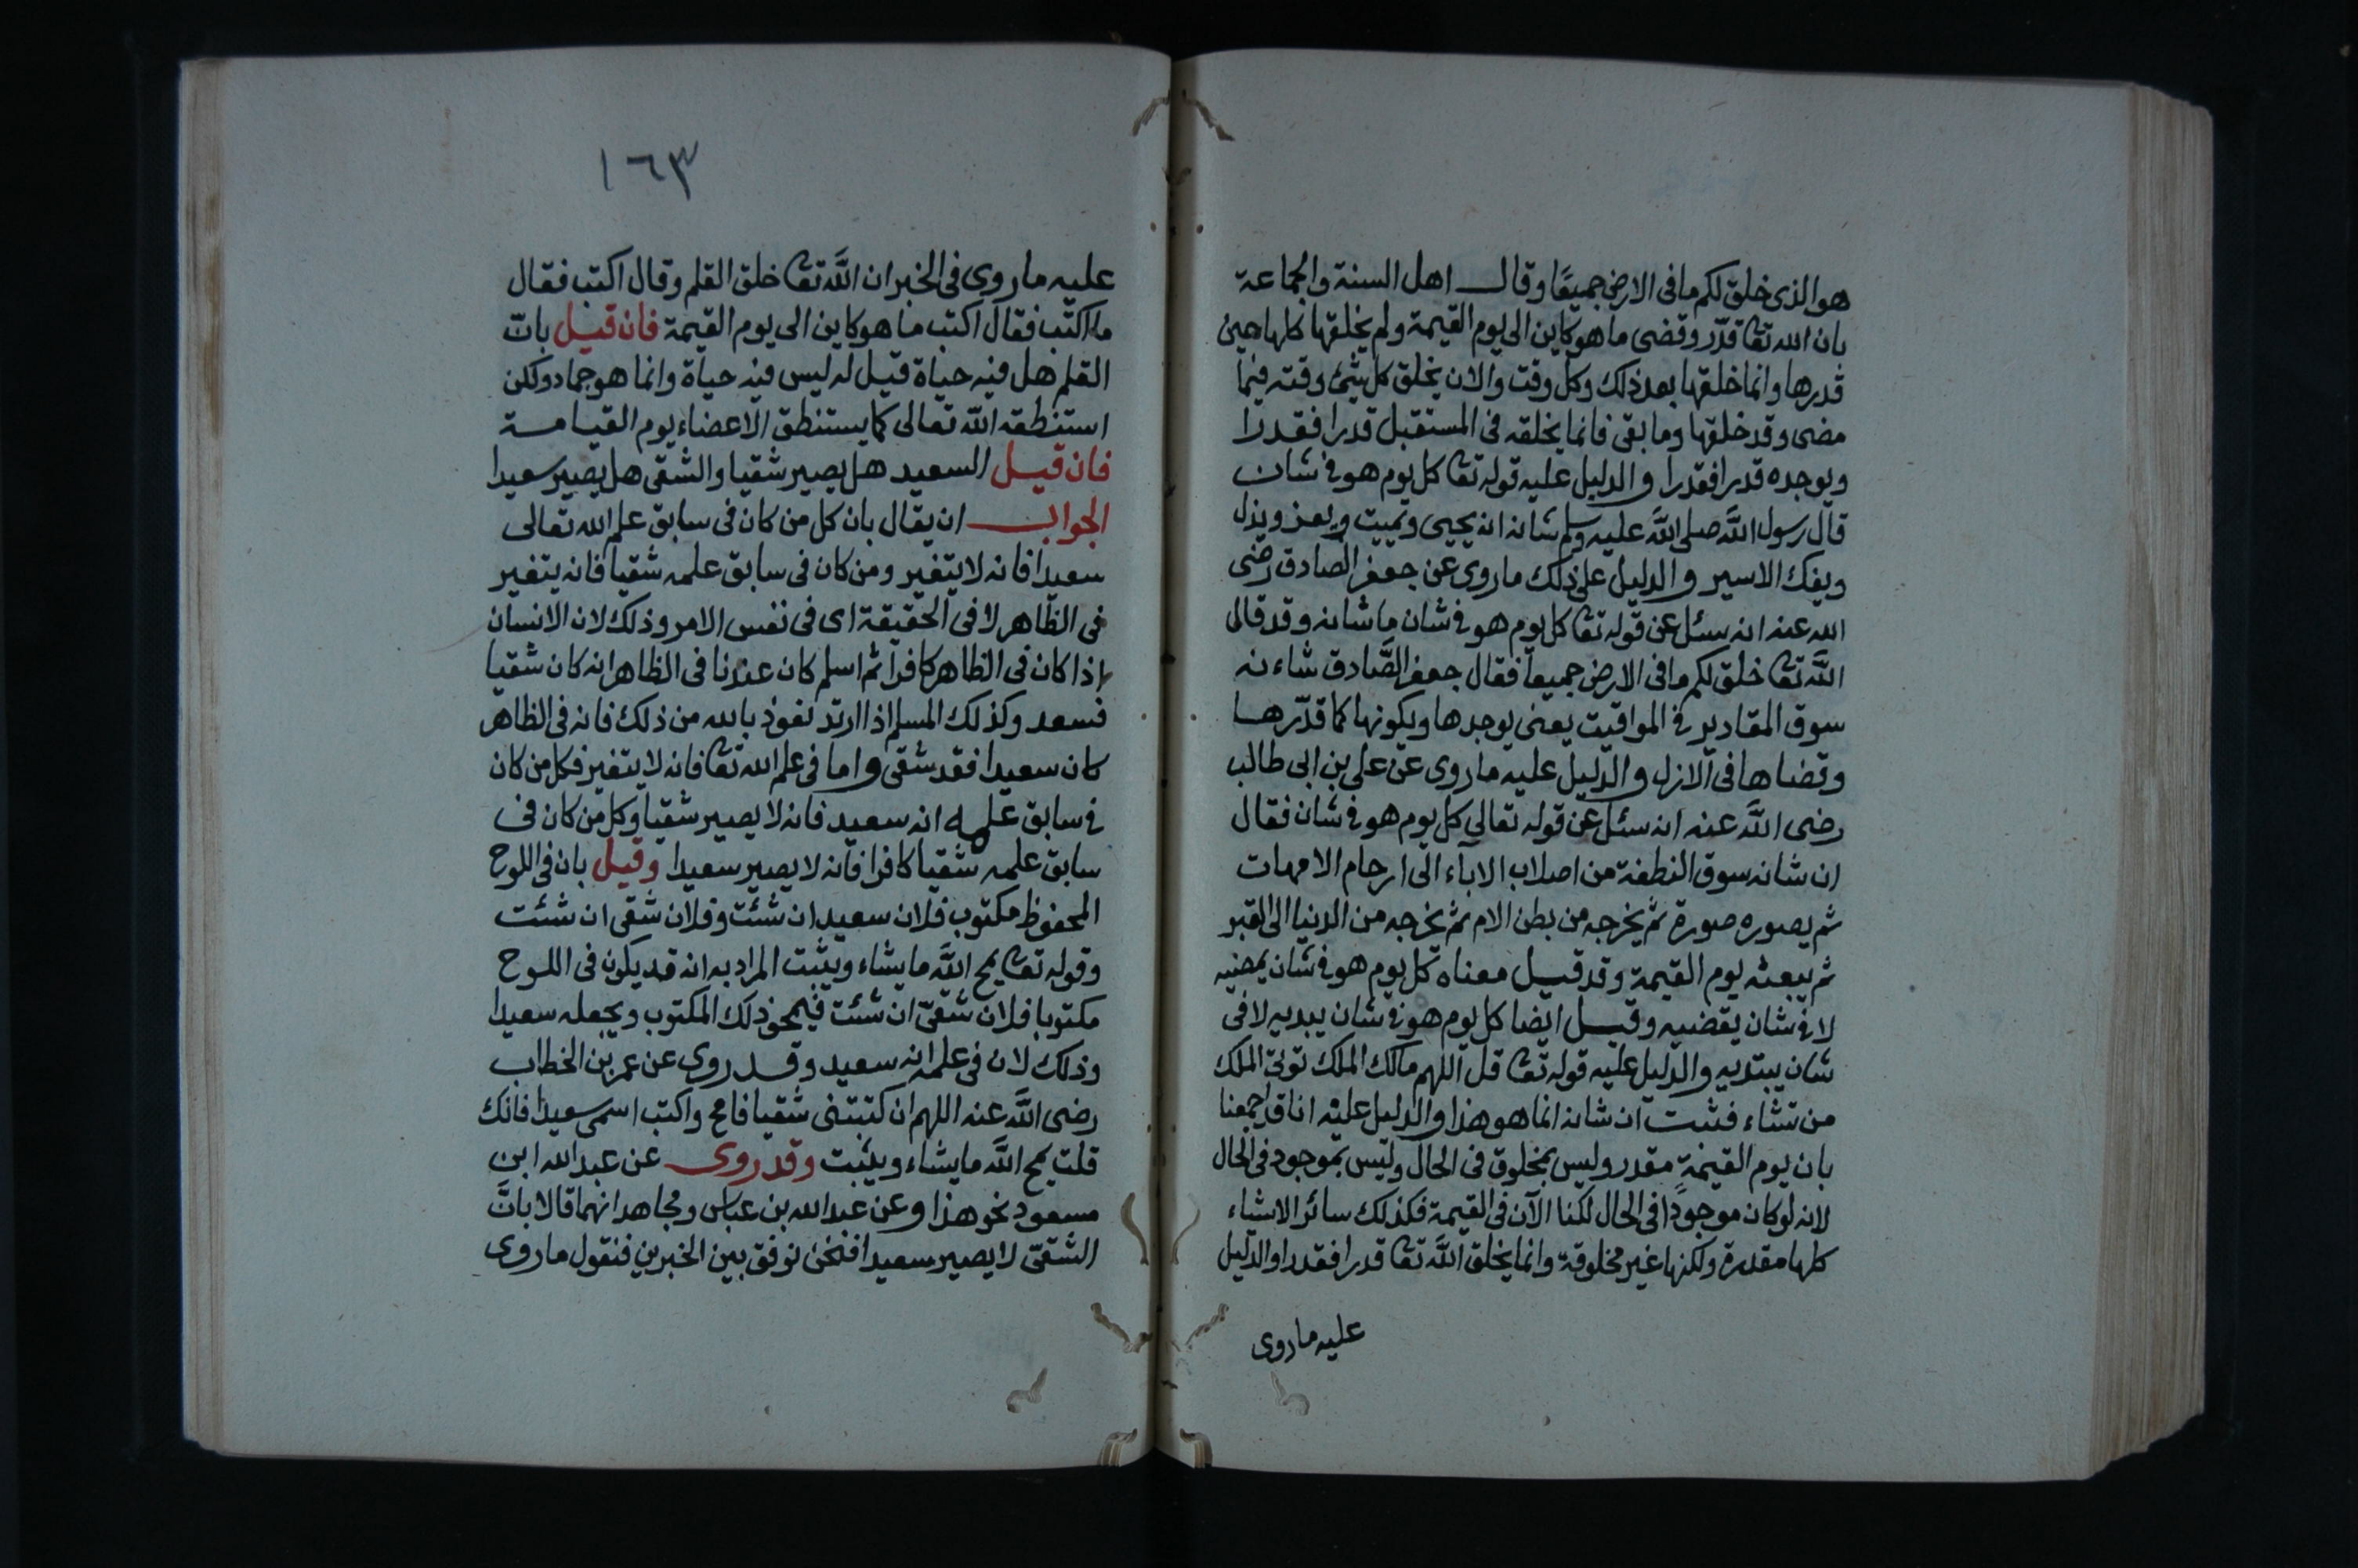 هو الذى خلق لكم ما فى الارض جميعًا وقال اهل السنة والجماعة
بان الله تعا قدّر وقضى ما هو كاين الى يوم القيمة ولم يخلقها كلها حين
قدرها وانما خلقها بعد ذلك وكل وقت والان يخلق كل شئ وقته فيما
مضى وقد خلقها وما بقى فانما يخلقه فى المستقبل قدرا فقدرا
ويوجده قدرا فقدرا والدليل عليه قوله تعا كل يوم هو فى شان
قال رسول الله صلى الله عليه وسلم شانه ان يحيى ويميت ويعز ويذل
ويفك الاسير والدليل على ذلك ما روى عن جعفر الصادق رضى
الله عنه انه سئل عن قوله تعا كل يوم هو فى شان ما شانه وقد قال
الله تعا خلق لكم ما فى الارض جميعا فقال جعفر الصَّادق شاءنه
سوق المقادير فى المواقيت يعنى يوجدها ويكونها كما قدّرها
وقضاها فى الازل والدليل عليه ما روى عن على بن ابى طالب
رضى الله عنه انه سئل عن قوله تعالى كل يوم هو فى شان فقال
ان شانه سوق النطفة من اصلاب الاباء الى ارحام الامهات
ثم يصوره صورة ثم يخرجه من بطن الام ثم يخرجه من الدنيا الى القبر
ثم يبعثه يوم القيمة وقد قيل معناه كل يوم هو فى شان يمضيه
لا فى شان يقضيه وقيل ايضا كل يوم هو فى شان يبديه لا فى
شان يبتديه والدليل عليه قوله تعا قل اللهم مالك الملك توتى الملك
من تشاء فثبت ان شانه انما هو هذا والدليل عليه انا اجمعنا
بان يوم القيمة مقدر وليس بمخلوق فى الحال وليس بموجود فى الحال
لانه لو كان موجودًا فى الحال لكنا الآن فى القيمة فكذلك سائر الاشياء
كلها مقدرة ولكنها غير مخلوقة وانما يخلق الله تعا قدرا فقدرا والدليل
عليه ما روى
١٦٣
عليه ما روى فى الخبر ان الله تعا خلق القلم وقال اكتب فقال
ما اكتب فقال اكتب ما هو كاين الى يوم القيمة فان قيل بانّ
القلم هل فيه حياة قيل له ليس فيه حياة وانما هو جماد ولكن
استنطقه الله تعالى كما يستنطق الاعضاء يوم القيامة
فان قيل السعيد هل يصير شقيا والشقى هل يصير سعيدا
الجواب ان يقال بان كل من كان فى سابق علم الله تعالى
سعيدا فانه لا يتغير ومن كان فى سابق علمه شقيا فانه يتغير
فى الظاهر لا فى الحقيقة اى فى نفس الامر وذلك لان الانسان
اذا كان فى الظاهر كافرا ثم اسلم كان عندنا فى الظاهر انه كان شقيا
فسعد وكذلك المسلم اذا ارتد نعوذ بالله من ذلك فانه فى الظاهر
كان سعيدا فقد شقى واما فى علم الله تعا فانه لا يتغير فكل من كان
فى سابق علمه انه سعيد فانه لا يصير شقيا وكل من كان فى
سابق علمه شقيا كافرا فانه لا يصير سعيدا وقيل بان فى اللوح
المحفوظ مكتوب فلان سعيد ان شئت وفلان شقى ان شئت
وقوله تعا يمح الله ما يشاء ويثبت المراد به انه قد يكون فى اللوح
مكتوبا فلان شقىّ ان شئت فيمحو ذلك المكتوب ويجعله سعيدا
وذلك لان فى علمه انه سعيد وقد روى عن عمر بن الخطاب
رضى الله عنه اللهم ان كتبتنى شقيا فامح واكتب اسمى سعيدا فانك
قلت يمح الله ما يشاء ويثبت وقد روى عن عبد الله ابن
مسعود نحو هذا وعن عبد الله بن عباس ومجاهد انهما قالا بانَّ
الشقىّ لا يصير سعيدا فنحن نوفق بين الخبرين فنقول ما روى